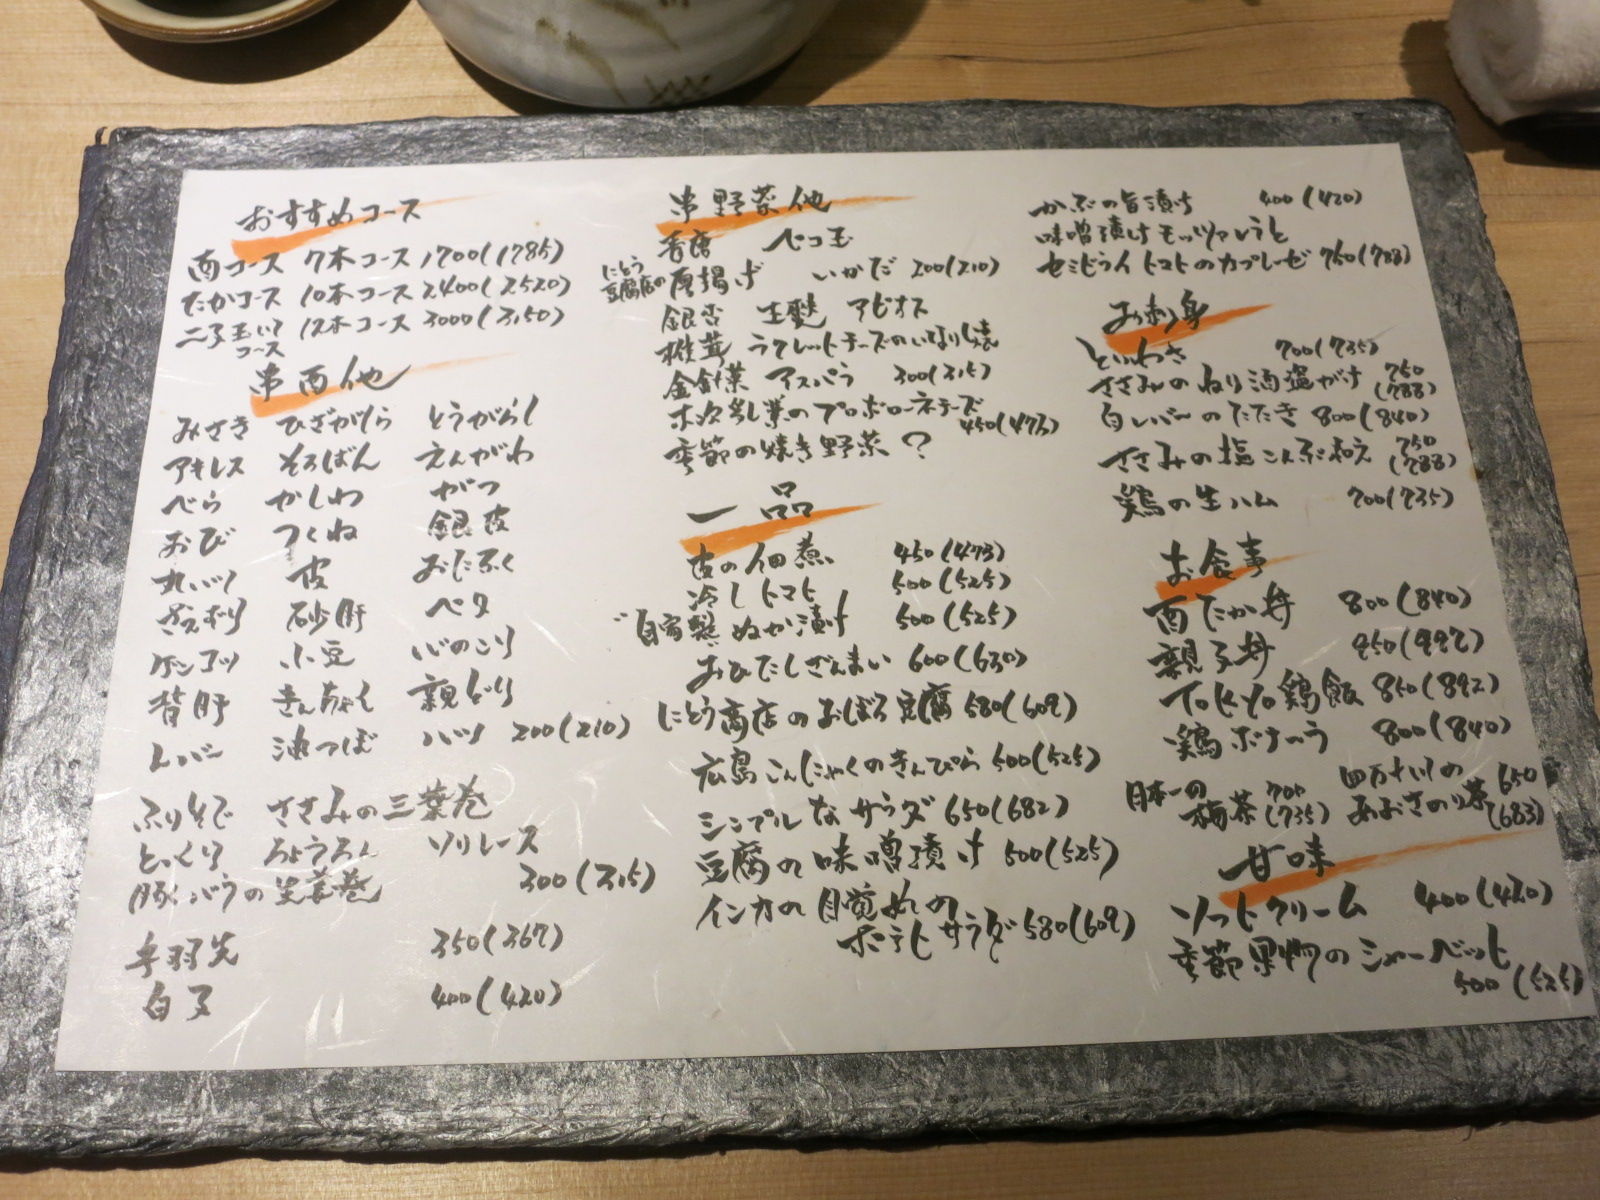 おすすめコース
酉コース 7本コース 1700(1785)
たかコース 10本コース 2400(2520)
二子玉いてコース 12本コース 3000(3150)
串酉他
みさき ひざがしら とうがらし
アキレス そろばん えんがわ
べら かしわ がつ
おび つくね 銀皮
丸ハツ 皮 おたふく
さえずり 砂肝 ペタ
ゲンコツ 小豆 心のこり
背肝 きんちゃく 親どり
レバー 油つぼ ハツ 200(210)
ふりそで ささみの三葉巻
とっくり ちょうちん ソリレース
豚バラの生姜巻 300(315)
手羽先 350(367)
白子 400(420)
串野菜他
香唐 ペコ玉
にとう豆腐店の厚揚げ いかだ 200(210)
銀杏 生麩 アピオス
椎茸 ラクレットチーズのいなり焼
金針菜 アスパラ 300(315)
木次乳業のプロボローネチーズ 450(473)
季節の焼き野菜 ?
一品
皮の佃煮 450(473)
冷しトマト 500(525)
自家製ぬか漬け 500(525)
おひたしざんまい 600(630)
にとう商店のおぼろ豆腐 580(609)
広島こんにゃくのきんぴら 500(525)
シンプルなサラダ 650(682)
豆腐の味噌漬け 500(525)
インカの目覚めの
ポテトサラダ 580(609)
かぶの旨漬け 400(420)
味噌漬けモッツァレラと
セミドライトマトのカプレーゼ 750(788)
お刺身
とりわさ 700(735)
ささみのねり酒盗がけ 750(788)
白レバーのたたき 800(840)
ささみの塩こんぶ和え 750(788)
鶏の生ハム 700(735)
お食事
酉たか丼 800(840)
親子丼 850(892)
TOKYO鶏飯 850(892)
鶏ボナーラ 800(840)
日本一の梅茶 700(735) 四万十川のあおさのり茶 650(683)
甘味
ソフトクリーム 400(420)
季節果物のシャーベット
500(525)